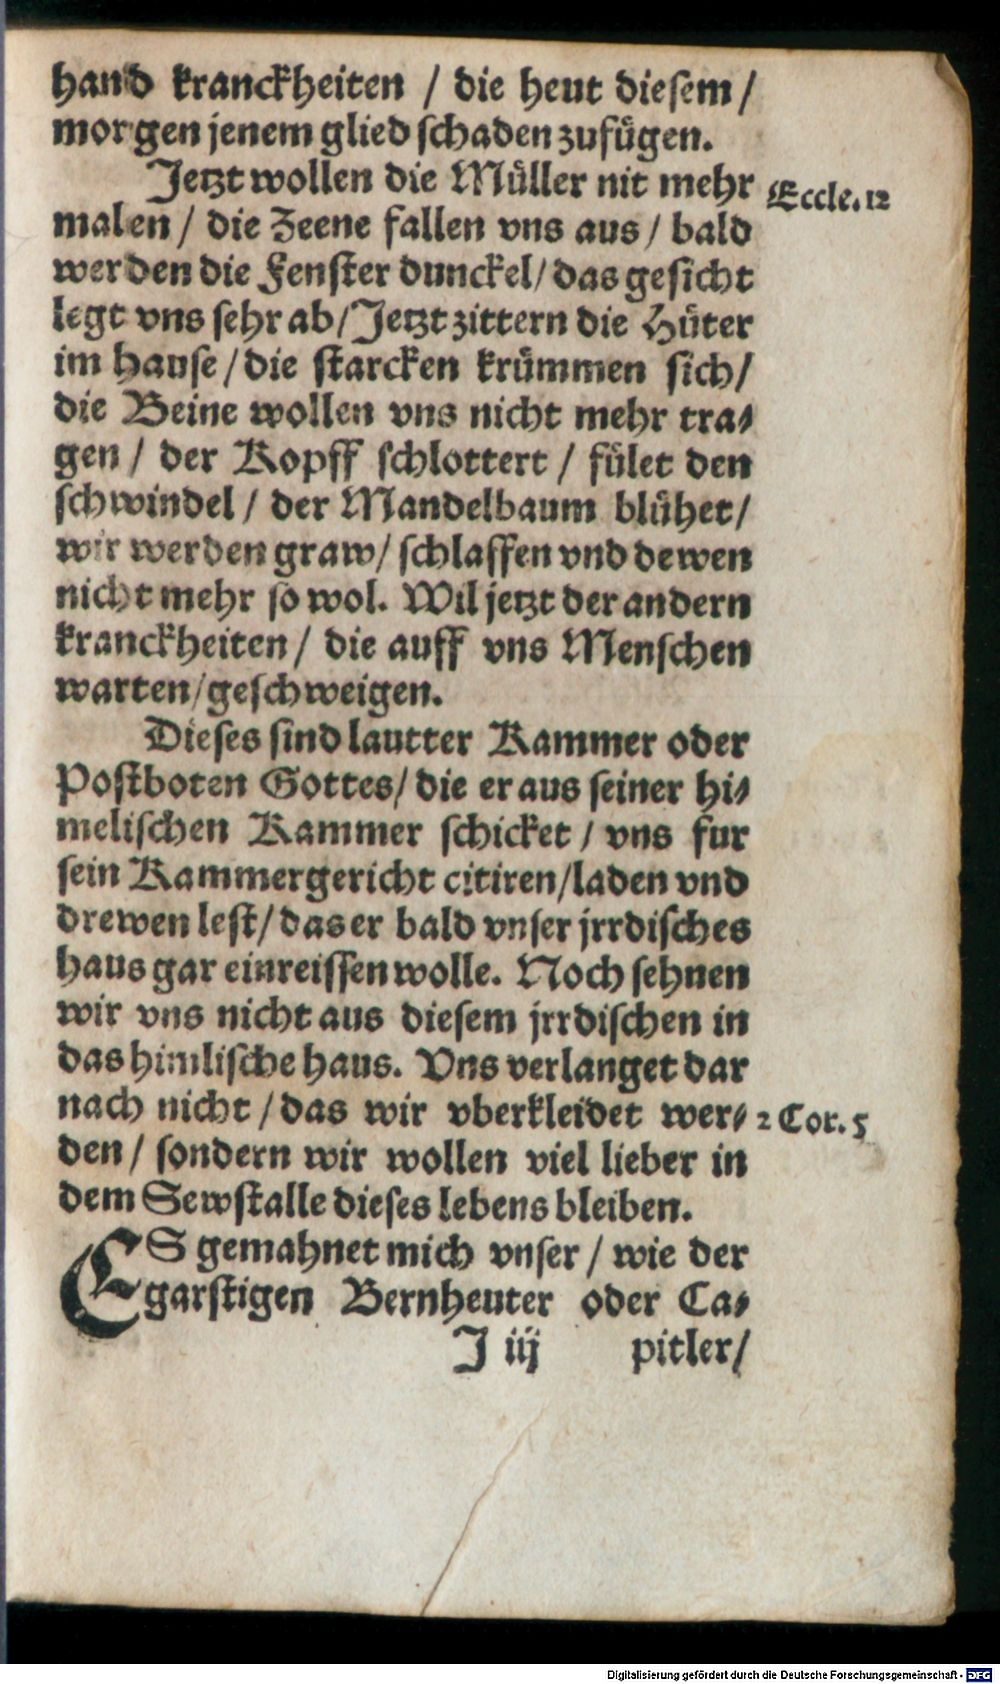 hand kranckheiten / die heut diesem /
morgen jenem glied schaden zufügen.
Jetzt wollen die Müller nit mehr
Eccle. 12
malen / die Zeene fallen vns aus / bald
werden die Fenster dunckel / das gesicht
legt vns sehr ab / Jetzt zittern die Hüter
im hause / die starcken krümmen sich /
die Beine wollen vns nicht mehr tra⸗
gen / der Kopff schlottert / fület den
schwindel / der Mandelbaum blühet /
wir werden graw / schlaffen vnd dewen
nicht mehr so wol. Wil jetzt der andern
kranckheiten / die auff vns Menschen
warten / geschweigen.
Dieses sind lautter Kammer oder
Postboten Gottes / die er aus seiner hi⸗
melischen Kammer schicket / vns fur
sein Kammergericht citiren / laden vnd
drewen lest / das er bald vnser jrrdisches
haus gar einreissen wolle. Noch sehnen
wir vns nicht aus diesem jrrdischen in
das himlische haus. Vns verlanget dar
nach nicht / das wir vberkleidet wer⸗
2 Cor. 5
den / sondern wir wollen viel lieber in
dem Sewstalle dieses lebens bleiben.
ES gemahnet mich vnser / wie der
garstigen Bernheuter oder Ca⸗
J iij pitler /
Digitalisierung gefördert durch die Deutsche Forschungsgemeinschaft - DFG